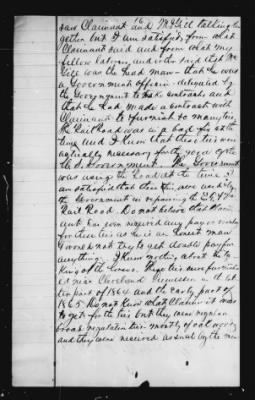 saw Claimant and McGill talking to
gether but I am satisfied from what
Claimant said and from what my
fellow laborers and others said that Mc
Gill was the head man - that he was
a Government officer - delegated by
the Government to make contracts and
that he had made a contract with
Claimant to furnish so many ties.
The Rail Road was in a bad fix at the
time and I know that these ties were
actually necessary for the good of the
U.S. Government. The Government
was using the Road at the time. I
am satisfied that these ties were used by
the Government in repairing the E.T. & Va
Rail Road. Do not believe that Claim
ant has ever received any pay or voucher
for these ties as he is an honest man
& would not try to get double pay for
anything. I know nothing about the ta
king of the horses. These ties were furnished
at near Cleveland Tennessee in the lat
ter part of 1864 and the early part of
1865. Do not know what Claimant was
to get for the ties but they were regular
broad regulation ties - mostly of oak wood
and they were received as such by the men